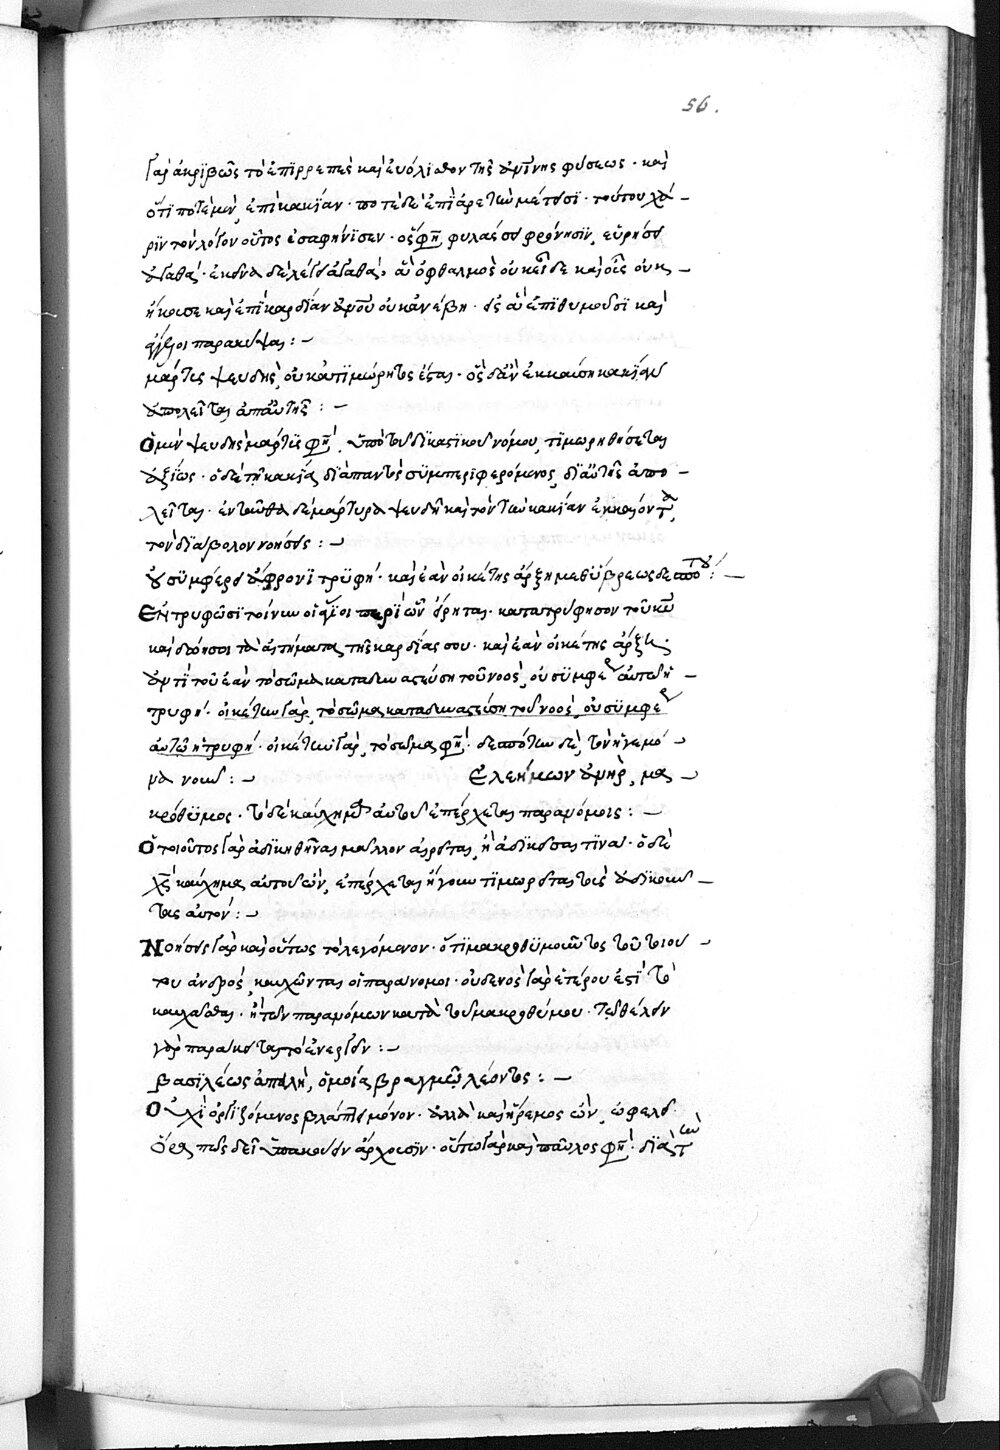 56.
γὰρ ἀκριβῶς τὸ ἐπιρρεπὲς καὶ εὐόλισθον τῆς ἀνίνης φύσεως· καὶ
ὅτι ποτὲ μὲν, ἐπὶ κακίαν· ποτὲ δὲ ἐπὶ ἀρετὴν μέτεισι· τούτου χά-
ριν τὸν λόγον οὗτος ἐσαφήνισεν· ὃς φη, φυλάσσει φρόνησιν, εὑρήσει
ἀγαθά· ἐκεῖνα δὲ λέγει ἀγαθά, ἃ ὀφθαλμὸς οὐκ εἶδε καὶ οὖς οὐκ
ἤκουσε καὶ ἐπὶ καρδίαν ἀνου οὐκ ἀνέβη· εἰς ἃ ἐπιθυμοῦσι καὶ
ἄγγελοι παρακύψαι:-
μάρτυς ψευδὴς, οὐκ ἀτιμώρητος ἔσται· ὃς δ' ἂν ἐκκαύση κακίαν
ἀπολεῖται ἀπ' αὐτῆς:-
Ὁ μὲν ψευδὴς μάρτυς φη, ὑπὸ τοῦ δικαστικοῦ νόμου, τιμωρηθήσεται
ἀξίως· ὁ δὲ τῆ κακία διὰ παντὸς συμπεριφερόμενος, δι' αὐτῆς ἀπο-
λεῖται· ἐνταῦθα δὲ μάρτυρα ψευδῆ καὶ τὸν τὴν κακίαν ἐκκαίοντα,
τὸν διάβολον νοήσεις:-
Οὐ συμφέρει ἄφρονι τρυφή· καὶ ἐὰν οἰκέτης ἄρξη μεθ' ὕβρεως δεσπότου:-
Ἐντρυφῶσι τοίνυν οἱ ἅγιοι περὶ ὧν εἴρηται· κατατρύφησον τοῦ κυ
καὶ δώσει σοι τὰ αἰτήματα τῆς καρδίας σου· καὶ ἐὰν οἰκέτης ἄρξη·
ἀντὶ τοῦ ἐὰν τὸ σῶμα καταδυναστεύση τοῦ νοὸς, οὐ συμφέρει αὐτῶ ἡ
τρυφή· οἰκέτην γὰρ, τὸ σῶμα καταδυναστεύση τοῦ νοὸς, οὐ συμφέρει
αὐτῶ ἡ τρυφή· οἰκέτην γὰρ, τὸ σῶμα φη· δεσπότην δὲ, τὸν ἡγεμό-
να νοῦν:- Ἐλεήμων ἀνὴρ, μα-
κρόθυμος· τὸ δὲ καύχημα αὐτοῦ ἐπέρχεται παρανόμοις:-
Ὁ τοιοῦτος γὰρ ἀδικηθῆναι μᾶλλον αἱρεῖται, ἢ ἀδικῆσαι τινά· ὁ δὲ
χς καύχημα αὐτοῦ ὢν, ἐπέρχεται ἤγουν τιμωρεῖται τοὺς ἀδικοῦν-
τας αὐτόν:-
Νοήσεις γὰρ καὶ οὕτως τὸ λεγόμενον· ὅτι μακροθυμοῦντος τοῦ τοιού-
του ἀνδρὸς, καυχῶνται οἱ παράνομοι· οὐδενὸς γὰρ ἑτέρου ἐστὶ τὸ
καυχᾶσθαι· ἢ τῶν παρανόμων κατὰ τοῦ μακροθύμου·
γὰρ
βασιλέως ἀπειλὴ, ὁμοία βρυγμῶ λέοντος:-
Οὐχὶ ὀργιζόμενος βλάπτει μόνον· ἀλλὰ καὶ ἤρεμος ὢν, ὠφελεῖ·
Ὅρα πῶς δεῖ ὑπακούειν ἄρχουσιν· οὕτω γὰρ καὶ παῦλος φη· διὰ τὴν